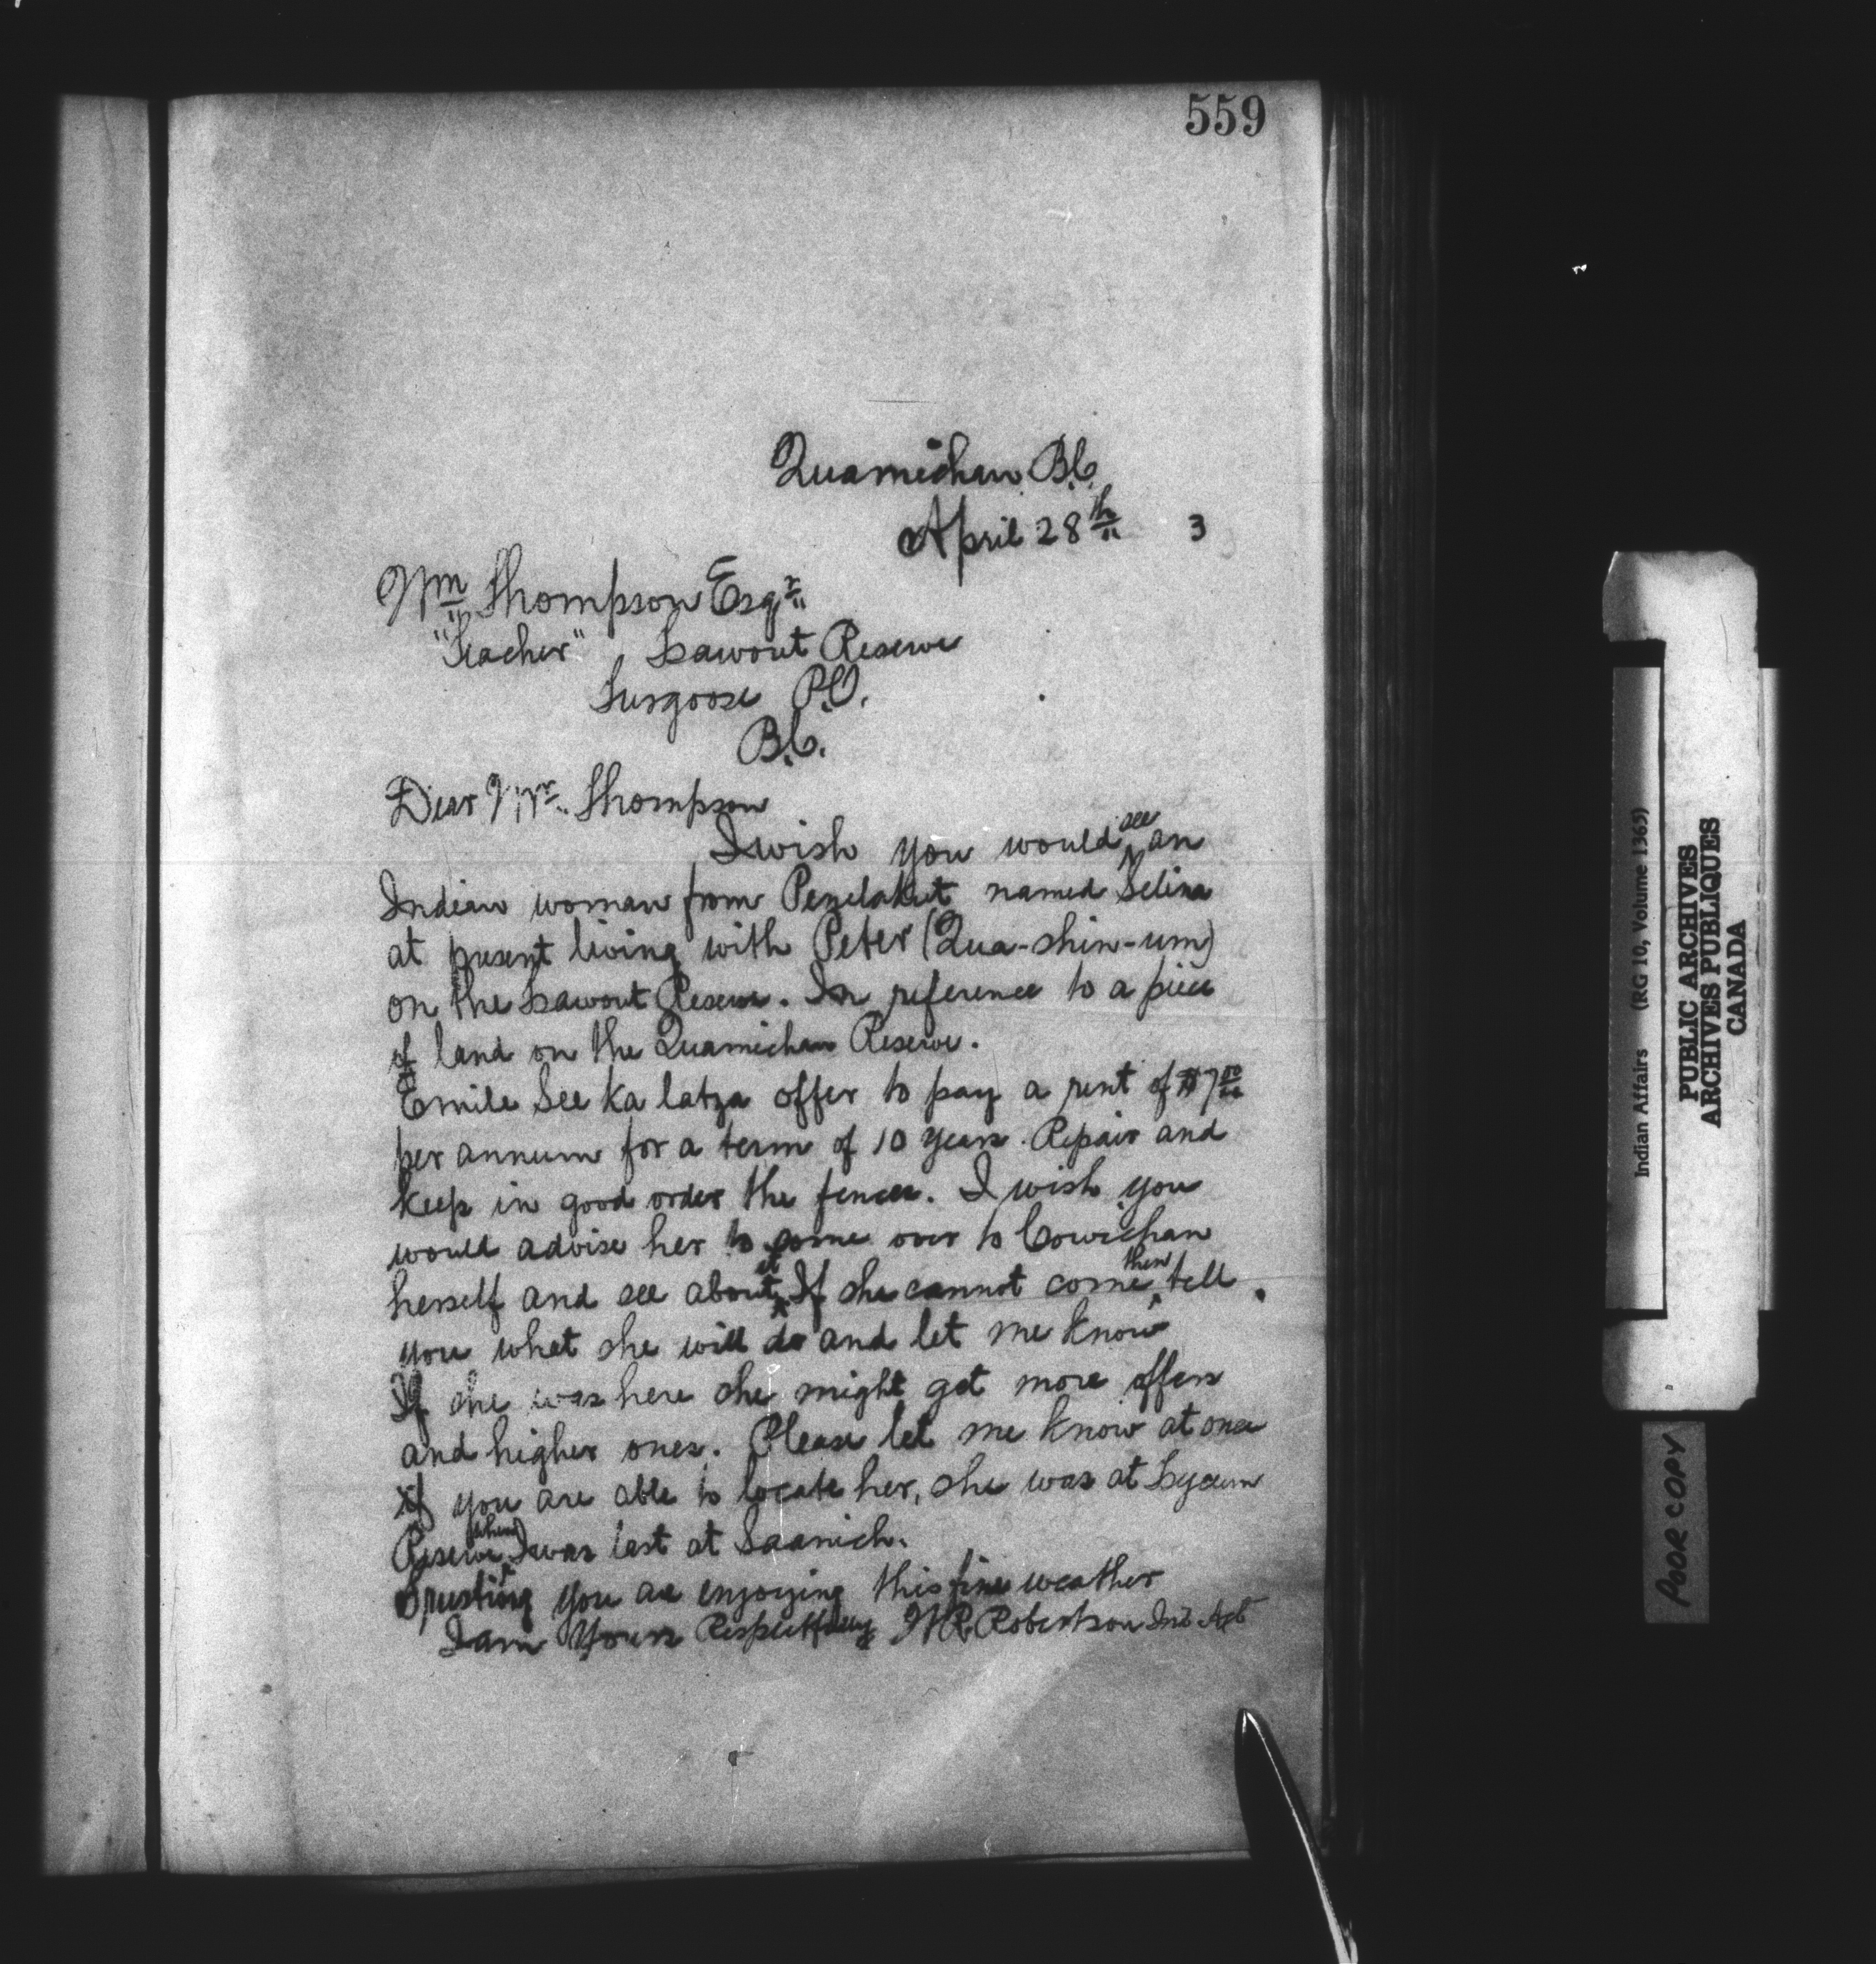 559
Quamichan B.C.
April 28th 3
Wm Thompson Esqr
"Teacher" Tsawout Reserve
Turgoose P.O.
B.C.
Dear Mr. Thompson
I wish you would see an
Indian woman from Penelakut named Selina
at present living with Peter (Qua-shin-um)
on the Tsawout Reserve. In reference to a piece
of land on the Quamichan Reserve.
Emile See ka latza offer to pay a rent of $7 00
per annum for a term of 10 years. Repair and
keep in good order the fences. I wish you
would advise her to come over to Cowichan
herself and see about it. If she cannot come then tell
you what she will do and let me know
If she was here she might get more offers
and higher ones. Please let me know at once
if you are able to locate her, she was at
Reserve when I was last at Saanich.
Trusting you are enjoying this fine weather
I am Yours Respectfully W.R. Robertson Ind Agt
Indian Affairs (RG 10, Volume 1363)
PUBLIC ARCHIVES
ARCHIVES PUBLIQUES
CANADA
POOR COPY